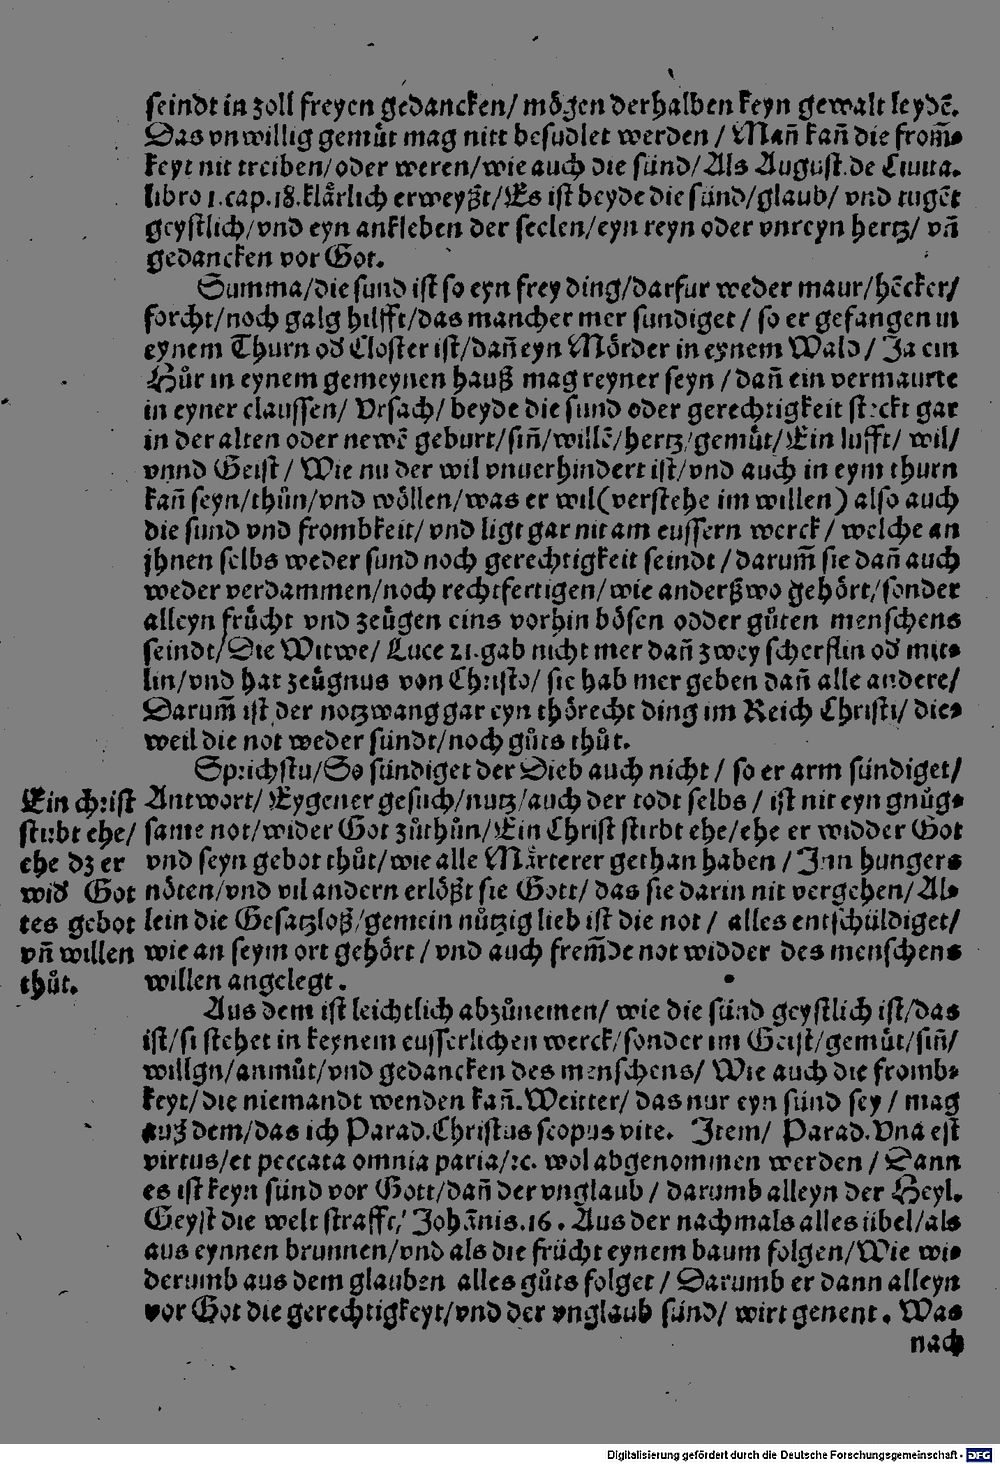 seindt in zoll freyen gedancken/ mögen derhalben keyn gewalt leydē.
Das vnwillig gemüt mag nitt besudlet werden / Mañ kañ die from̄-
keyt nit treiben/oder weren/wie auch die sünd/Als August.de Ciuita.
libro 1.cap.18.klärlich erweyßt/Es ist beyde die sünd/glaub/ vnd tugēt
geystlich/vnd eyn ankleben der seelen/eyn reyn oder vnreyn hertz/ vñ
gedancken vor Got.
Summa/die sund ist so eyn frey ding/darfur weder maur/hēcker/
forcht/noch galg hilfft/das mancher mer sundiget / so er gefangen in
eynem Thurn oď Closter ist/dañ eyn Mörder in eynem Wald / Ja ein
Hůr in eynem gemeynen hauß mag reyner seyn / dañ ein vermaurte
in eyner claussen/ Vrsach/ beyde die sund oder gerechtigkeit steckt gar
in der alten oder newē geburt/siñ/willē/hertz/gemůt/Ein lufft/ wil/
vnnd Geist / Wie nu der wil vnuerhindert ist/vnd auch in eym thurn
kañ seyn/thůn/vnd wöllen/was er wil(verstehe im willen) also auch
die sund vnd frombkeit/ vnd ligt gar nit am eussern werck / welche an
jhnen selbs weder sund noch gerechtigkeit seindt / darum̄ sie dañ auch
weder verdammen/noch rechtfertigen/wie anderßwo gehört/sonder
alleyn frücht vnd zeügen eins vorhin bösen odder gůten menschens
seindt/Die Witwe/ Luce 21.gab nicht mer dañ zwey scherflin oď mit-
lin/vnd hat zeügnus von Christo/ sie hab mer geben dañ alle andere/
Darum̄ ist der notzwang gar eyn thörecht ding im Reich Christi/ die-
weil die not weder sündt/noch gůts thůt.
Sprichstu/So sündiget der Dieb auch nicht / so er arm sündiget/
Antwort/ Eygener gesuch/nutz/auch der todt selbs / ist nit eyn gnůg-
same not/wider Got zůthůn/Ein Christ stirbt ehe/ehe er widder Got
vnd seyn gebot thůt/wie alle Märterer gethan haben / Inn hungers
nöten/vnd vil andern erlößt sie Gott/ das sie darin nit vergehen/Al-
lein die Gesatzloß/gemein nützig lieb ist die not / alles entschüldiget/
wie an seym ort gehört / vnd auch frem̄de not widder des menschens
willen angelegt.
Ein christ
stirbt ehe/
ehe dz er
wiď Got
tes gebot
vñ willen
thůt.
Aus dem ist leichtlich abzůnemen/ wie die sünd geystlich ist/das
ist/si stehet in keynem eusserlichen werck/sonder im Geist/gemůt/siñ/
willgn/anmůt/vnd gedancken des menschens/ Wie auch die fromb-
keyt/die niemandt wenden kañ.Weitter/ das nur eyn sünd sey / mag
auß dem/das ich Parad.Christus scopus vite. Item/ Parad.Vna est
virtus/et peccata omnia paria/ꝛc. wol abgenommen werden / Dann
es ist keyn sünd vor Gott/dañ der vnglaub / darumb alleyn der Heyl.
Geyst die welt straffet/ Johānis.16. Aus der nachmals alles übel/als
aus eynnen brunnen/vnd als die frücht eynem baum folgen/Wie wi-
derumb aus dem glauben alles gůts folget / Darumb er dann alleyn
vor Got die gerechtigkeyt/vnd der vnglaub sünd/ wirt genent. Was
nach
Digitalisierung gefördert durch die Deutsche Forschungsgemeinschaft - DFG